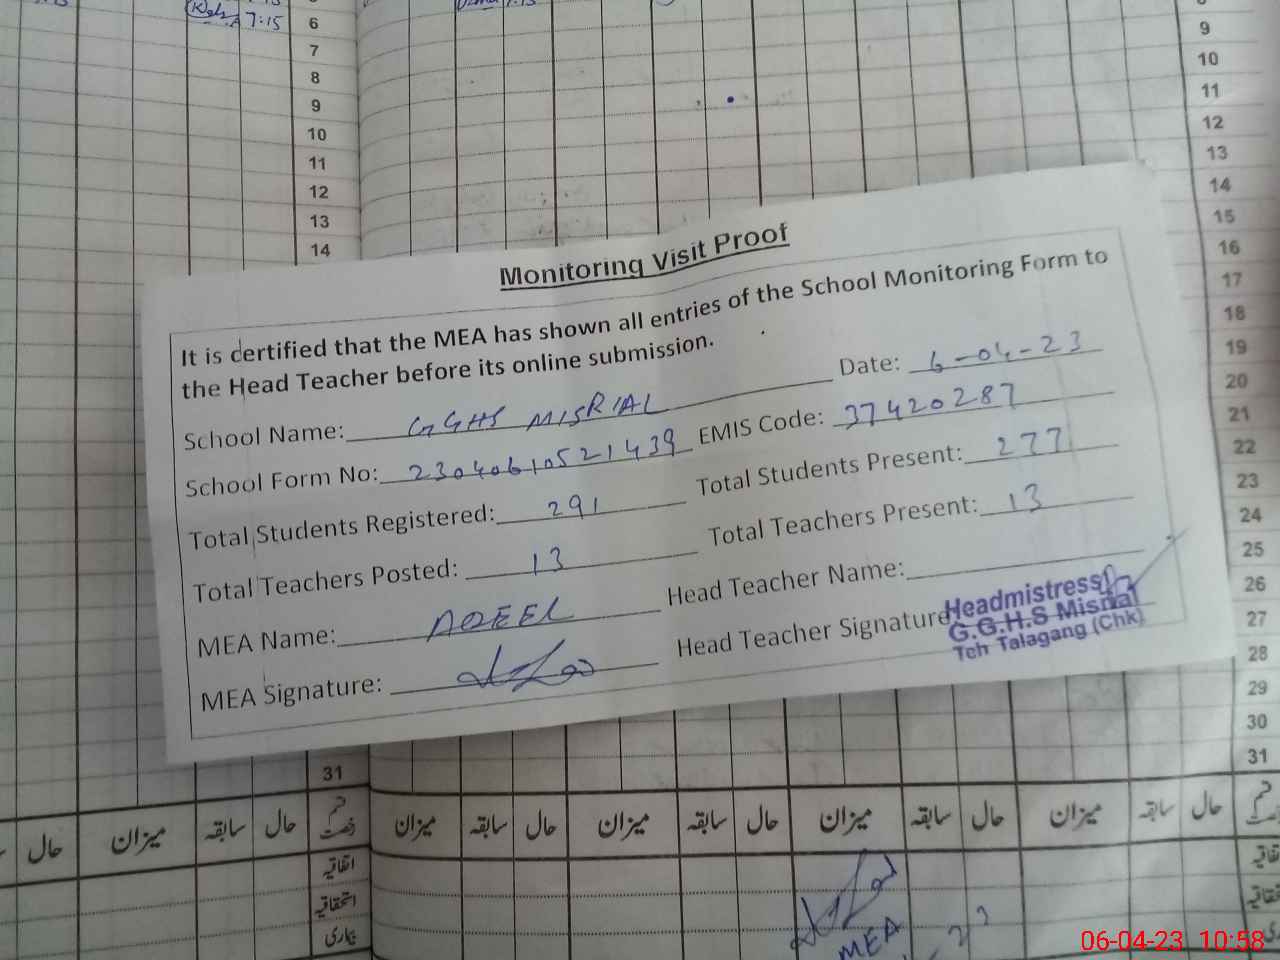 7:15
6
7
8
9
10
11
12
13
14
9
10
11
12
13
14
15
16
17
18
19
20
21
22
23
24
25
26
27
28
29
30
31
Monitoring Visit Proof
It is certified that the MEA has shown all entries of the School Monitoring Form to
the Head Teacher before its online submission.
School Name: GGHS MISRIAL Date: 6-04-23
School Form No: 23040610521439 EMIS Code: 37420287
Total Students Registered: 291 Total Students Present: 277
Total Teachers Posted: 13 Total Teachers Present: 13
MEA Name: AQEEL Head Teacher Name:
MEA Signature: Head Teacher Signature
Headmistress
G.G.H.S Misrial
Teh Talagang (Chk)
31
حال میزان سابقہ حال میزان سابقہ حال میزان سابقہ حال میزان سابقہ حال میزان سابقہ حال
اتفاقیہ
استحقاقیہ
بیماری
MEA
06-04-23 10:58